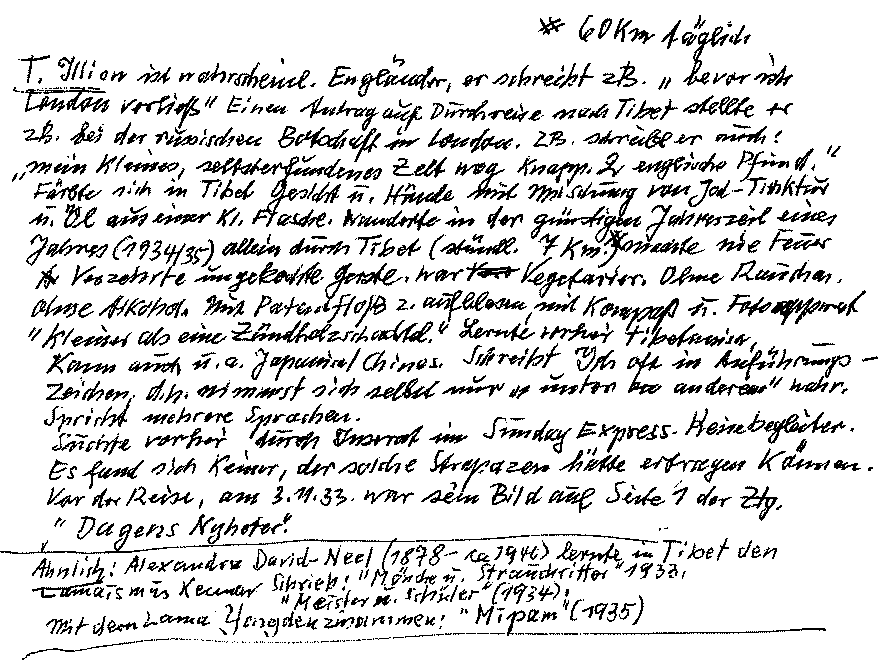 * 60 Km täglich
T. Illion ist wahrscheinl. Engländer, er schreibt zB. „bevor ich
London verließ" Einen Antrag auf Durchreise nach Tibet stellte er
zB. bei der russischen Botschaft in London. ZB. schreibt er auch:
„mein kleines, selbsterfundenes Zelt wog knapp. 2 englische Pfund."
Färbte sich in Tibet Gesicht u. Hände mit Mischung von Jod-Tinktur
u. Öl aus einer kl. Flasche. Wanderte in der günstigen Jahreszeit eines
Jahres (1934/35) allein durch Tibet (stündl. 7 Km.*) machte nie Feuer
Verzehrte ungekochte Gerste. war Vegetarier. Ohne Rauchen.
ohne Alkohol. Mit Patentfloß z. aufblasen, mit Kompaß u. Fotoapparat
"Kleiner als eine Zündholzschachtel." Lernte vorher tibetanisch,
Kann auch u.a. Japanisch Chines. Schreibt Ich oft in Anführungs-
zeichen, d.h. nimmt sich selbst nur "unter anderen" wahr.
Spricht mehrere Sprachen.
Suchte vorher durch Inserat im Sunday Express. Reisebegleiter.
Es fand sich Keiner, der solche Strapazen hätte ertragen können.
Vor der Reise, am 3.11.33. war sein Bild auf Seite 1 der Ztg.
"Dagens Nyheter".
Ähnlich: Alexandra David-Neel (1878- ca 1946) lernte in Tibet den
Lamaismus kennen Schrieb: "Mönche u. Strauchritter" 1933.
"Meister u. Schüler" (1934);
Mit dem Lama Yongden zusammen: "Mipam" (1935)